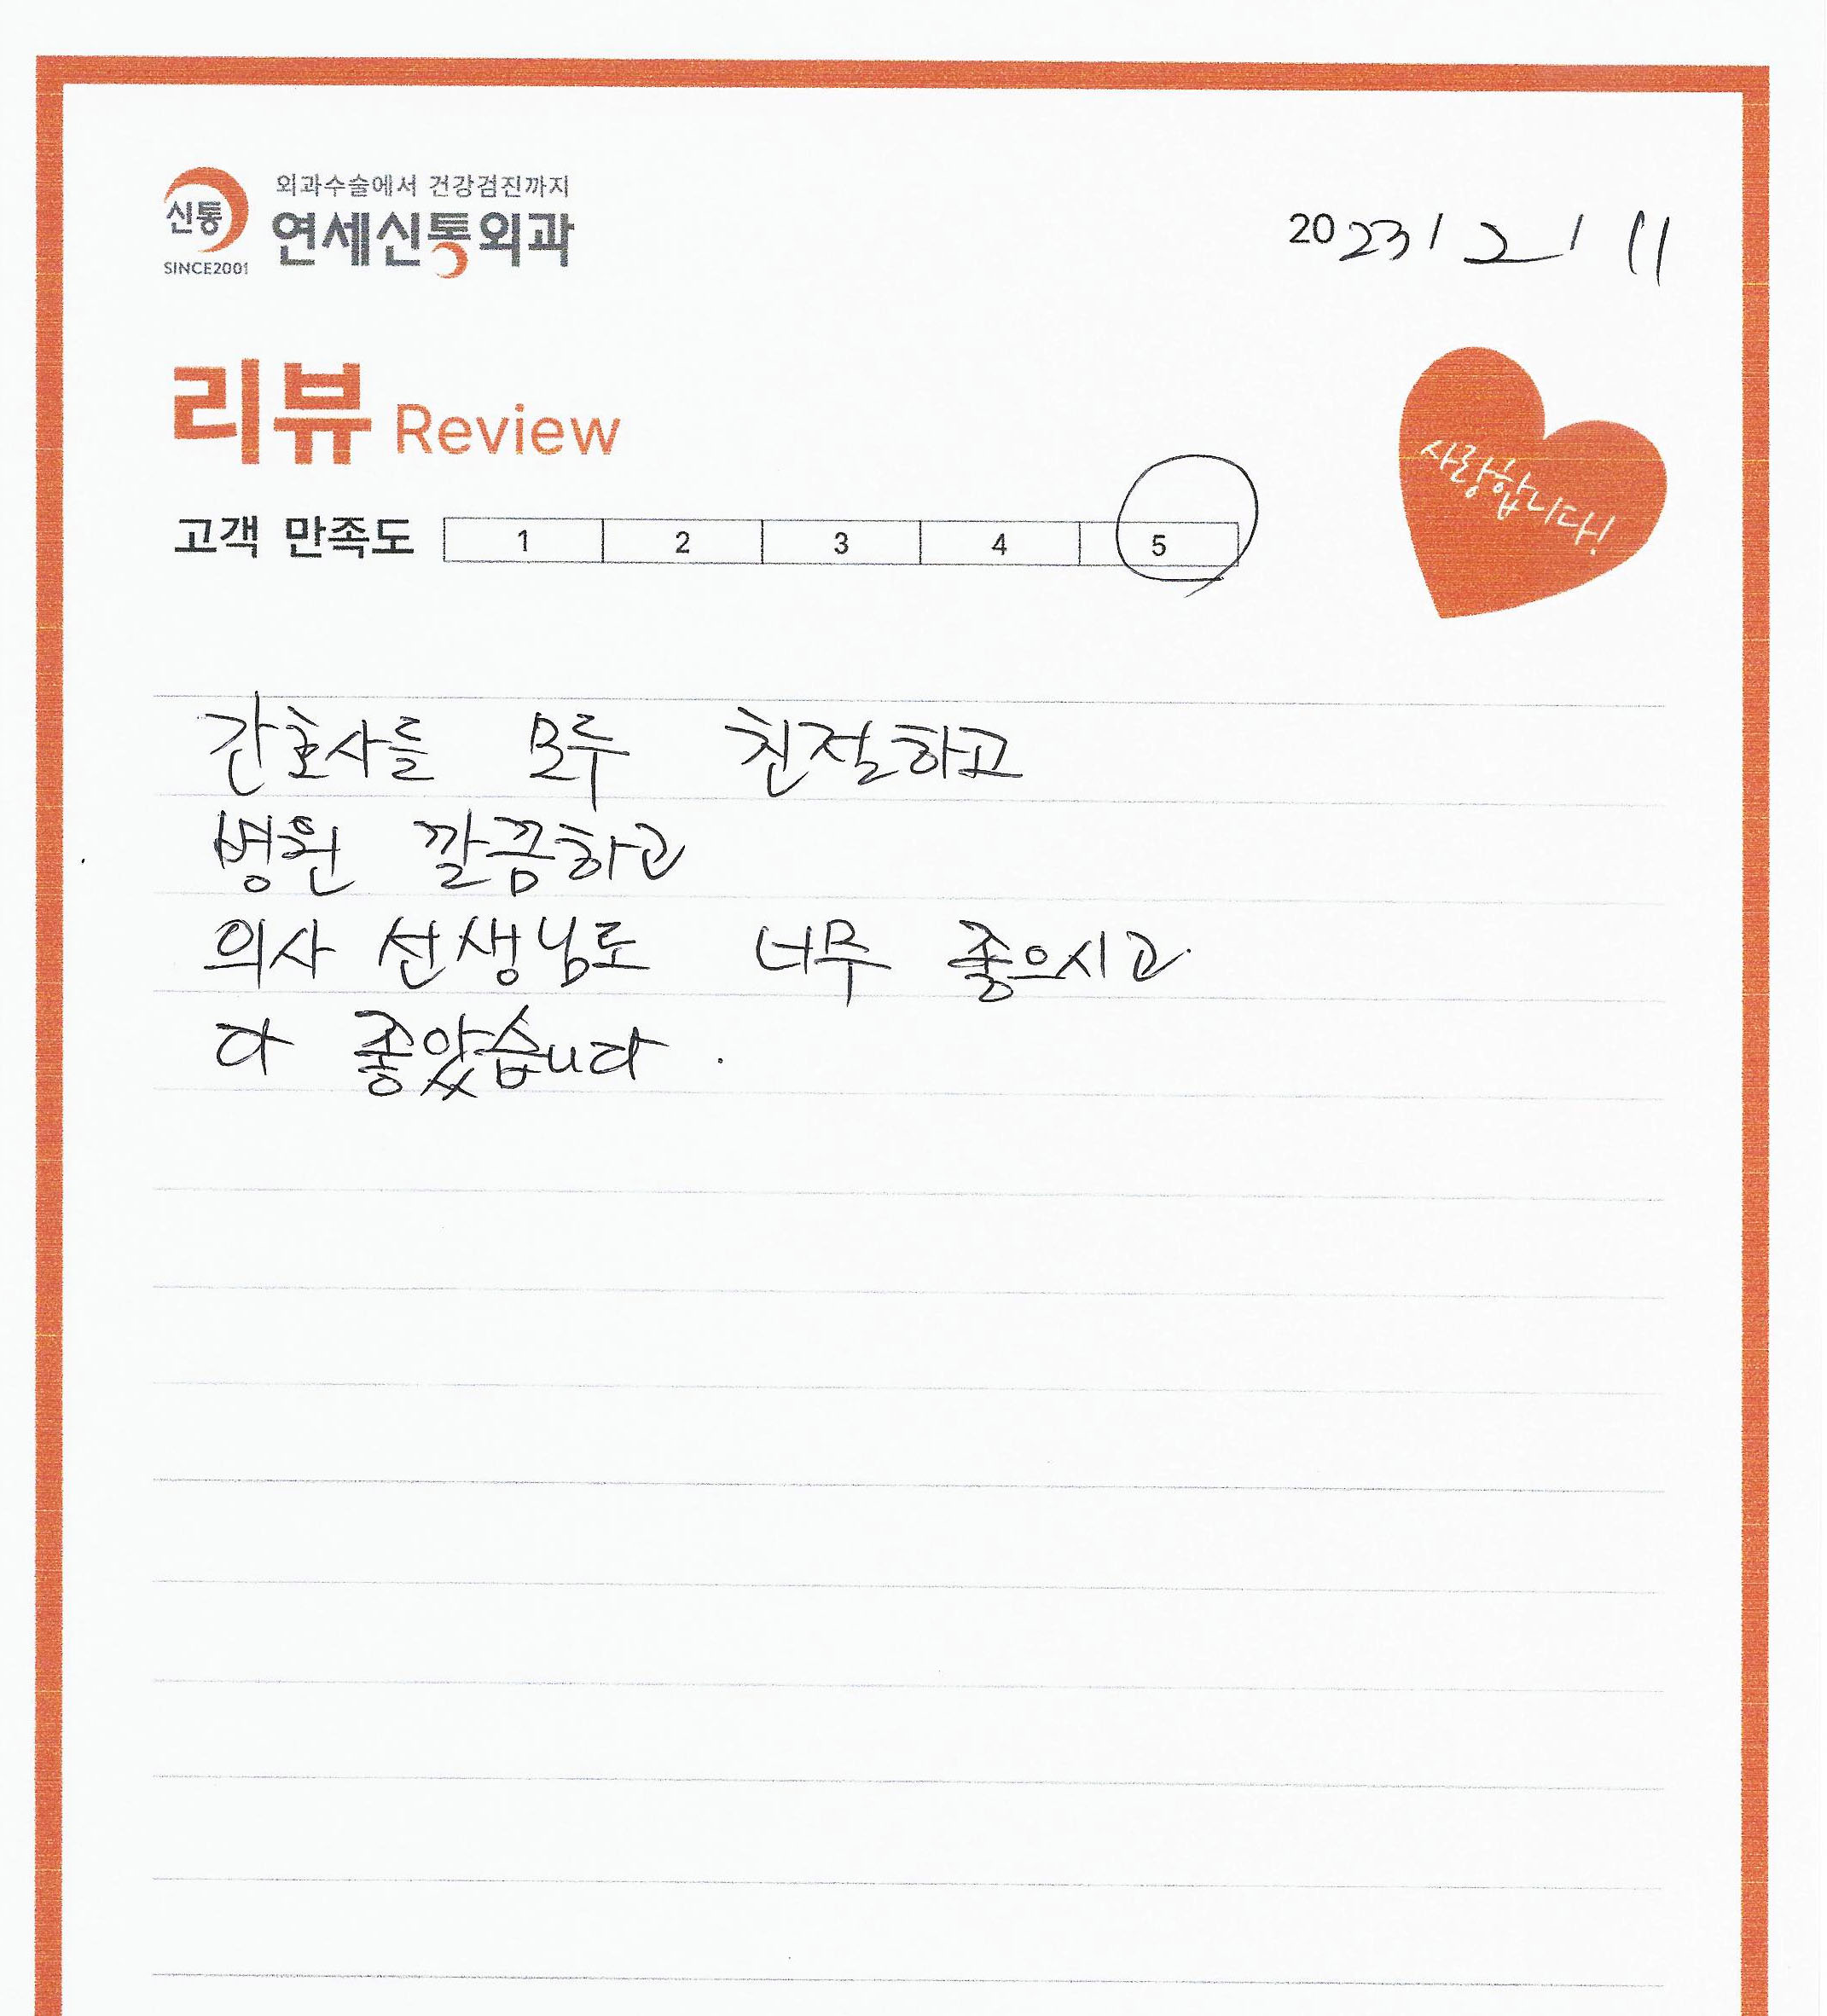 외과수술에서 건강검진까지
신통 연세신통외과
SINCE2001
2023/2/11
리뷰 Review
사랑합니다!
고객 만족도 1 2 3 4 5
간호사들 모두 친절하고
병원 깔끔하고
의사 선생님도 너무 좋으시고
다 좋았습니다.